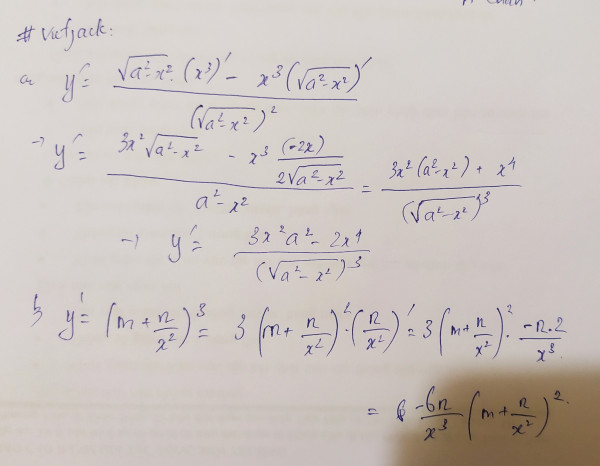 # Vietjack:
a, y' = (√(a²-x²) · (x³)' - x³(√(a²-x²))') / (√(a²-x²))²
→ y' = (3x²√(a²-x²) - x³ (-2x)/(2√(a²-x²))) / (a²-x²) = (3x²(a²-x²) + x⁴) / (√(a²-x²))³
→ y' = (3x²a² - 2x⁴) / (√(a²-x²))³
b, y' = (m + n/x²)³ = 3(m + n/x²)² · (n/x²)' = 3(m + n/x²)² · (-n.2)/x³
= -6n/x³ (m + n/x²)².